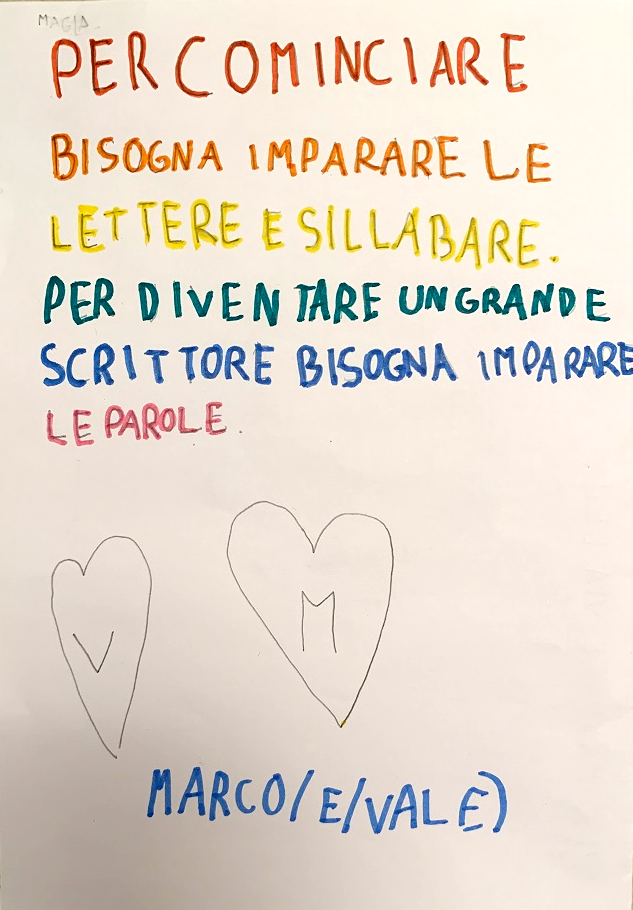 MAGIA
PER COMINCIARE
BISOGNA IMPARARE LE
LETTERE E SILLABARE.
PER DIVENTARE UN GRANDE
SCRITTORE BISOGNA IMPARARE
LE PAROLE.
V
M
MARCO/E/VALE)